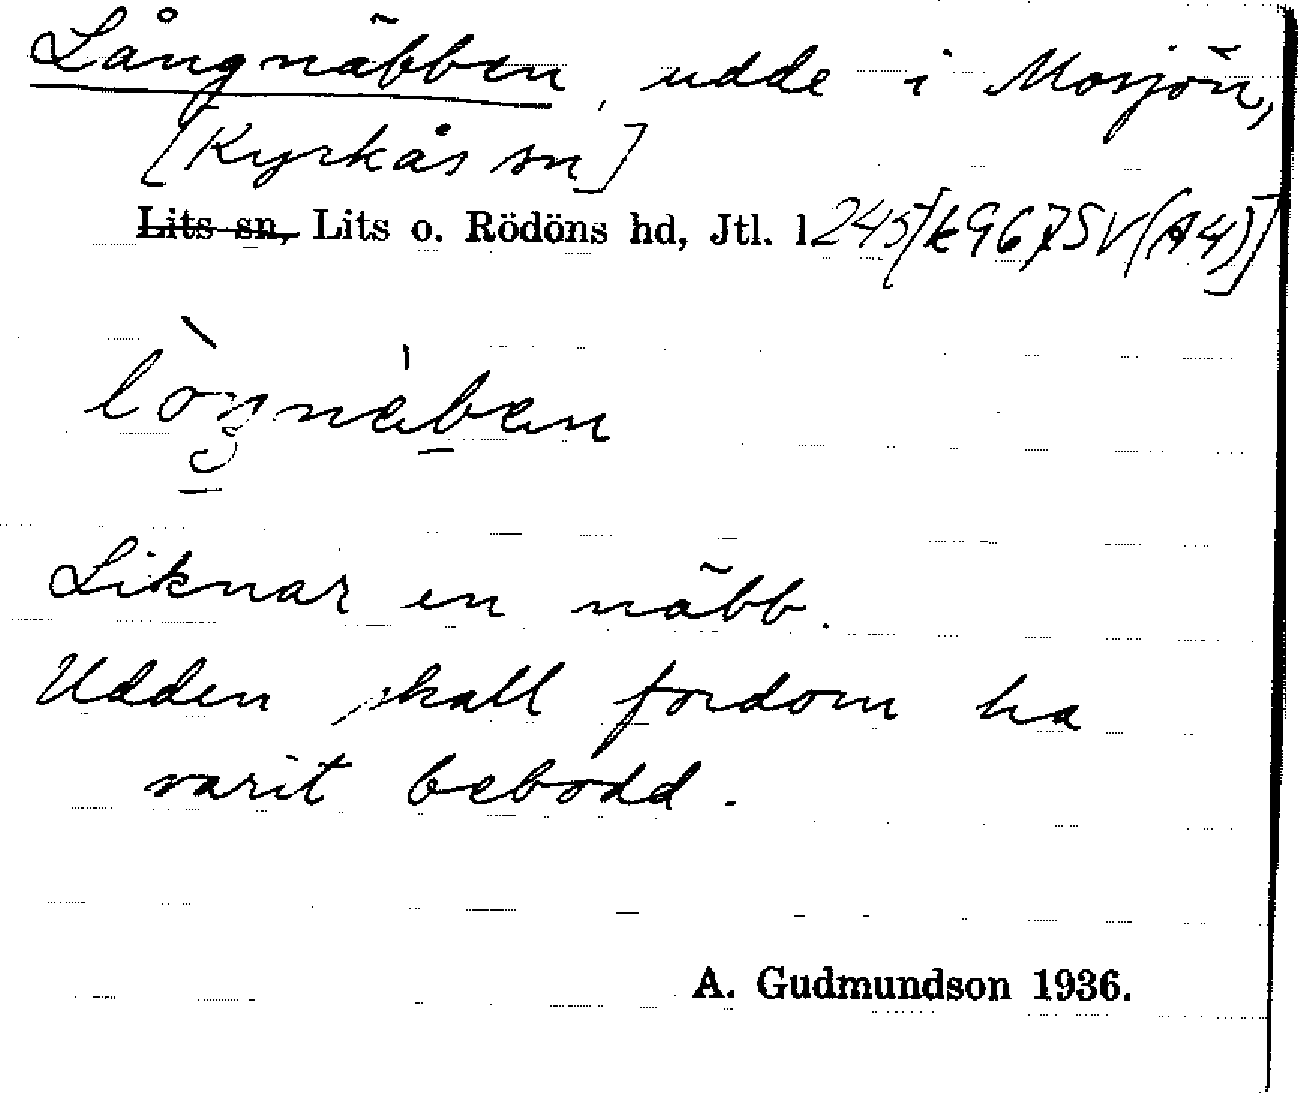 Långnäbben, udde i Mosjön,
[Kyrkås sn]
Lits sn, Lits o. Rödöns hd, Jtl. l
Liknar en näbb.
Udden skall fordom ha
varit bebodd.
A. Gudmundson 1936.